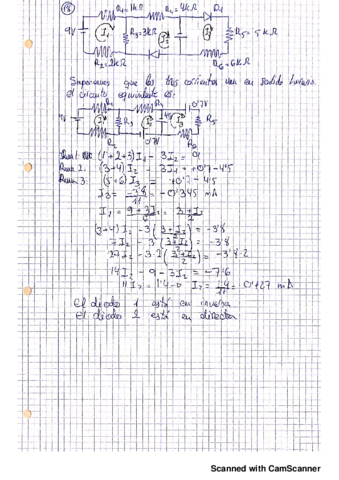 R1=1kΩ R4=4kΩ D1
9V I1 R3=3kΩ R5=5kΩ
R2=2kΩ R6=6kΩ
Suponemos que las tres corrientes van en sentido horario.
el circuito equivalente es:
0'7V
R3 R5
R2 0'7V R6
(1+2+3)I1 - 3I2 = 9
2: (3+4)I2 - 3I1 = +0'7-4'5
3: (5+6)I3 = +0'7-4'5
I3 = -3'8/11 = -0'345 mA
I1 = 9+3I2/6 = 3+I2/2
(3+4)I2 - 3(3+I2/2) = -3'8
7I2 - 3(3+I2/2) = -3'8
2·7I2 - 3·2(3+I2/2) = -3'8·2
14I2 - 9 - 3I2 = -7'6
11I2 = 1'4 → I2 = 1'4/11 = 0'127 mA
El diodo 1 está en inversa
El diodo 2 está en directa
Scanned with CamScanner